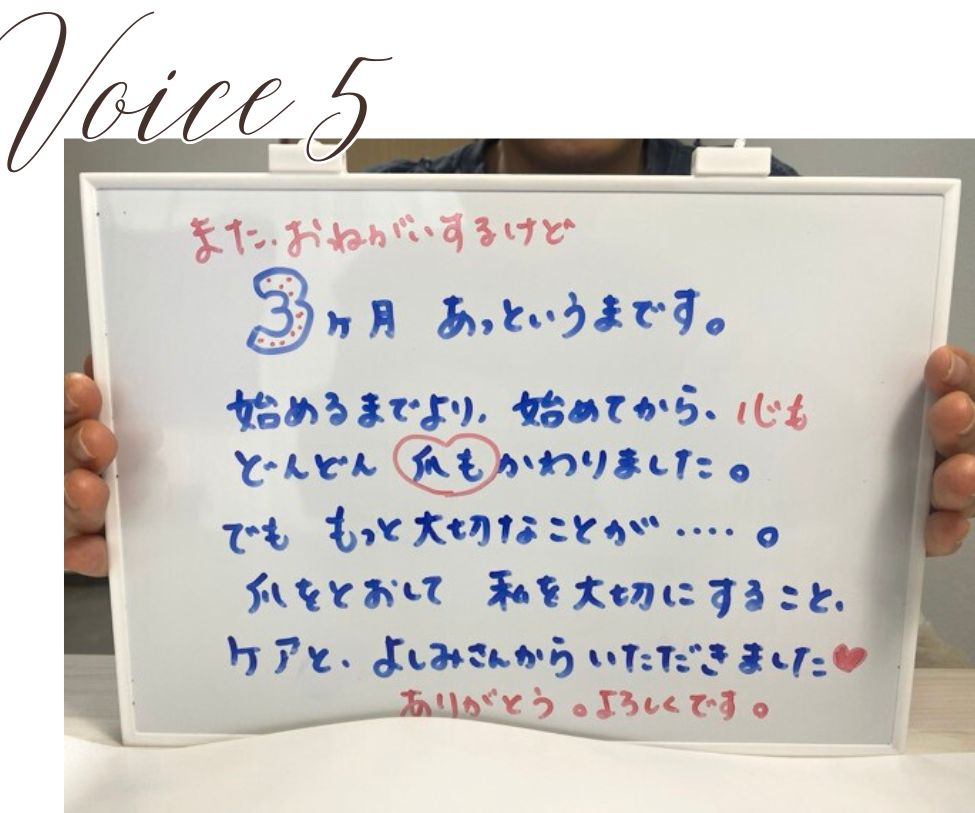 Voice 5
また、おねがいするけど
3ヶ月 あっというまです。
始めるまでより、始めてから、心も
どんどん 爪も かわりました。
でも もっと大切なことが‥‥。
爪をとおして 私を大切にすること、
ケアと、よしみさんから いただきました♥
ありがとう。よろしくです。